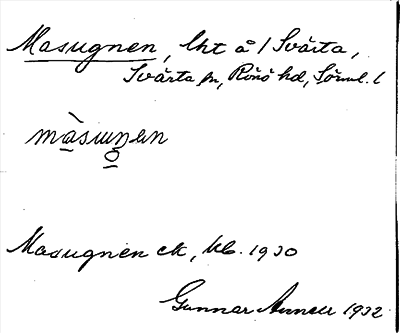 Masugnen, lht å / Svärta,
Svärta sn, Rönö hd, Sörml. l
màsuŋen
Masugnen ek, kb. 1930
Gunnar 1932